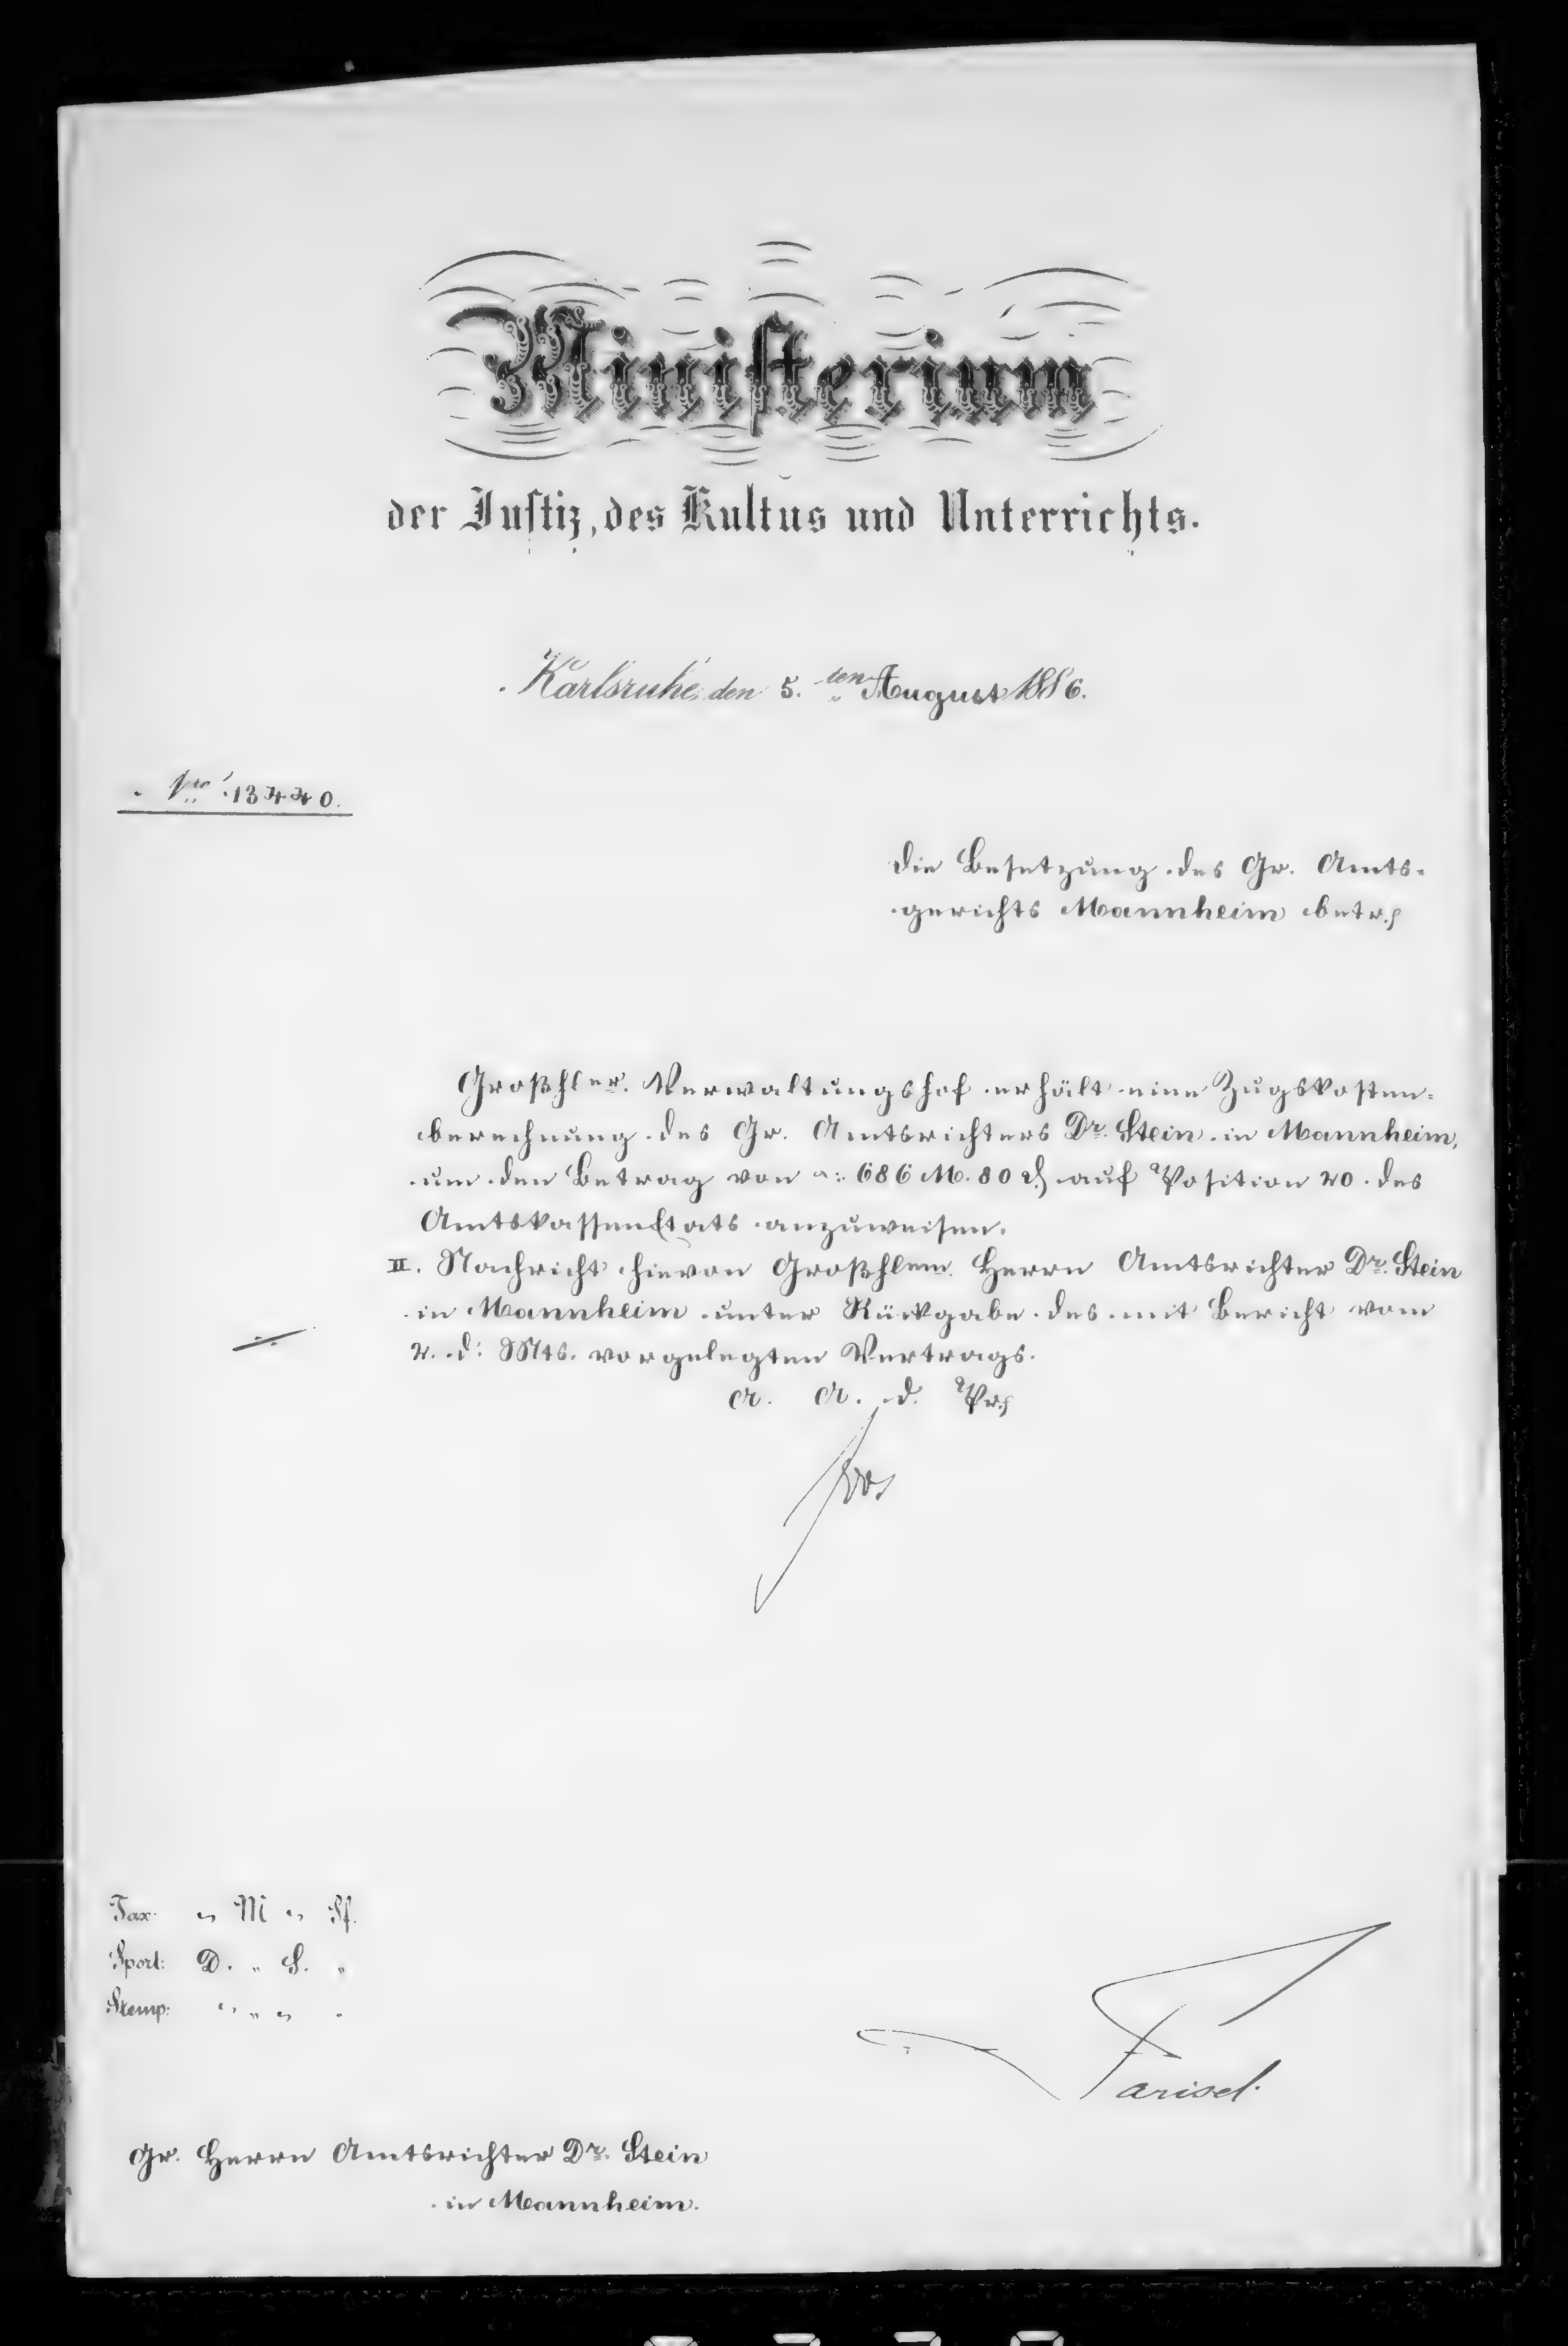 Ministerium
der Justiz, des Kultus und Unterrichts.
Karlsruhe, den 5. ten August 1886.
Nro 13440.
Die Besetzung des Gr. Amts-
gerichts Mannheim betr.
Großhlr. Verwaltungshof erhält eine Zugskosten-
berechnung des Gr. Amtsrichters Dr. Stein in Mannheim,
um den Betrag von 686 M. 80 ₰ auf Position 20 des
Amtskassenetats anzuweisen.
II. Nachricht hievon Großhlem. Herrn Amtsrichter Dr. Stein
in Mannheim unter Rückgabe des mit Bericht vom
2. d. Mts. vorgelegten Vertrags.
A. A. d. Pr.
Tax: " M " Pf.
Sport: D. " S. "
Stemp: " " " "
Gr. Herrn Amtsrichter Dr. Stein
in Mannheim.